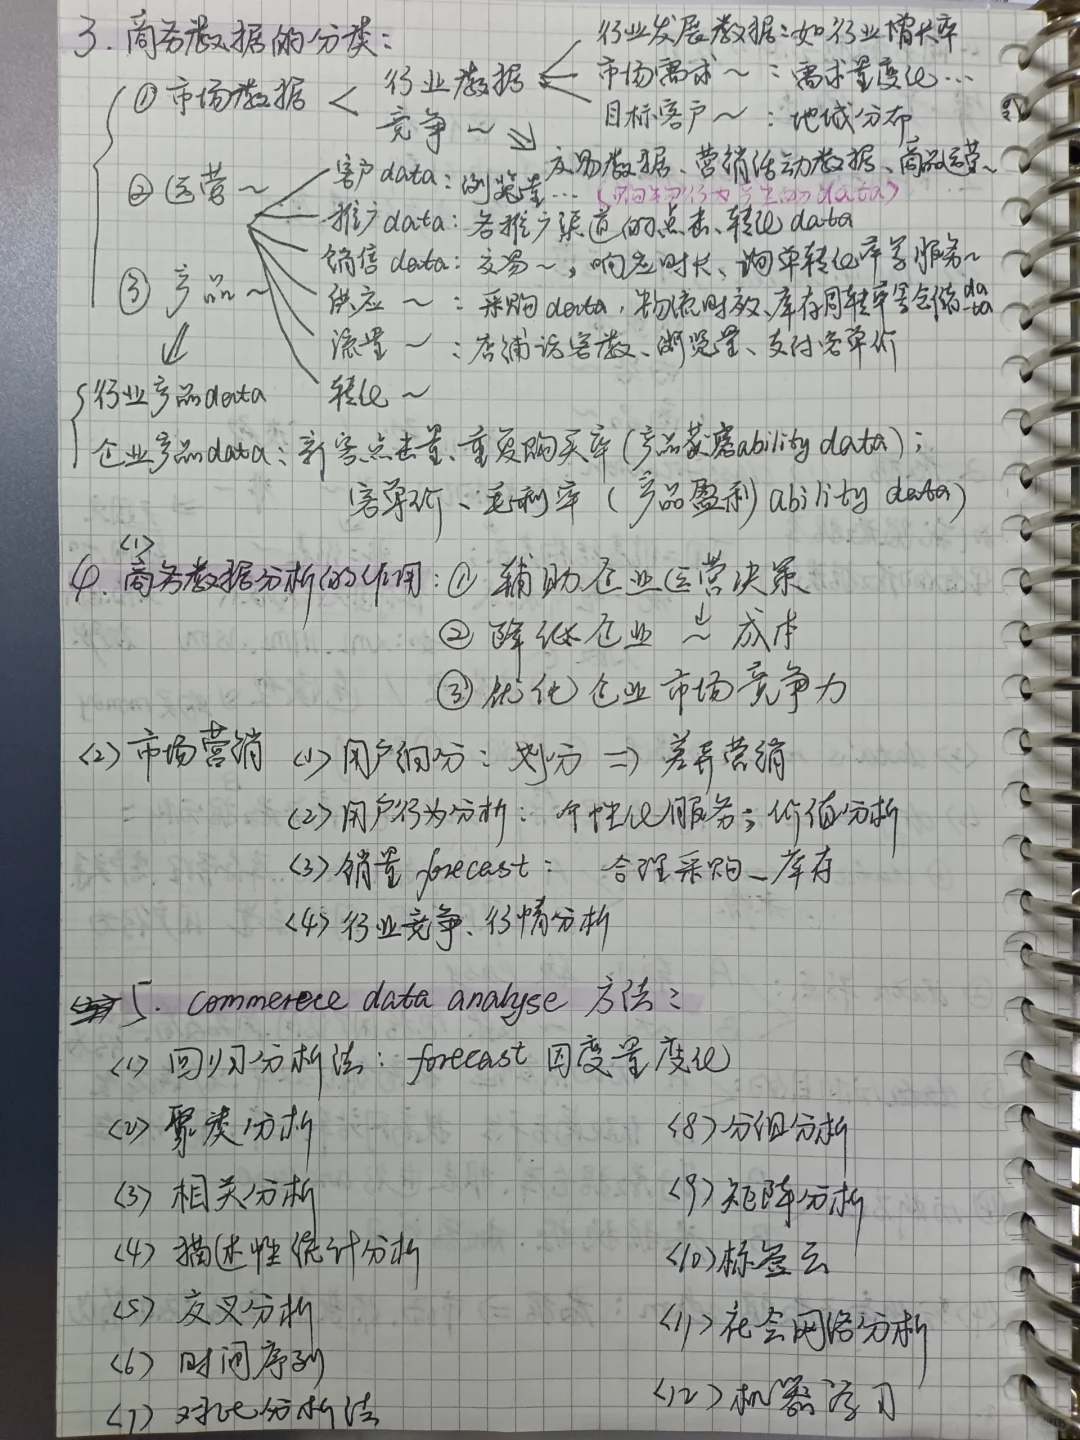 3. 商务数据的分类：
行业发展数据：如行业增长率
① 市场数据 < 行业数据
市场需求～：需求量变化…
竞争～
目标客户～：地域分布
交易数据、营销活动数据、商品运营～
② 运营～
客户data：浏览量…
(购物行为产生的data)
推广data：各推广渠道的点击、转化data
销售data：交易～，响应时长、询单转化率等服务～
③ 产品～
供应～：采购data，物流时效、库存周转率等仓储data
流量～：店铺访客数、浏览量、支付客单价
转化～
行业产品data
企业产品data：新客点击量、重复购买率(产品获客ability data)；
客单价、毛利率(产品盈利)ability data)
<1>
4. 商务数据分析的作用：① 辅助企业运营决策
② 降低企业～成本
③ 优化企业市场竞争力
<2> 市场营销 <1> 用户细分：划分 => 差异营销
<2> 用户行为分析：个性化服务；价值分析
<3> 销量 forecast：合理采购_库存
<4> 行业竞争、行情分析
5. commerece data analyse 方法：
<1> 回归分析法：forecast 因变量变化
<2> 聚类分析
<3> 相关分析
<4> 描述性统计分析
<5> 交叉分析
<6> 时间序列
<7> 对比分析法
<8> 分组分析
<9> 矩阵分析
<10> 标签云
<11> 社会网络分析
<12> 机器学习